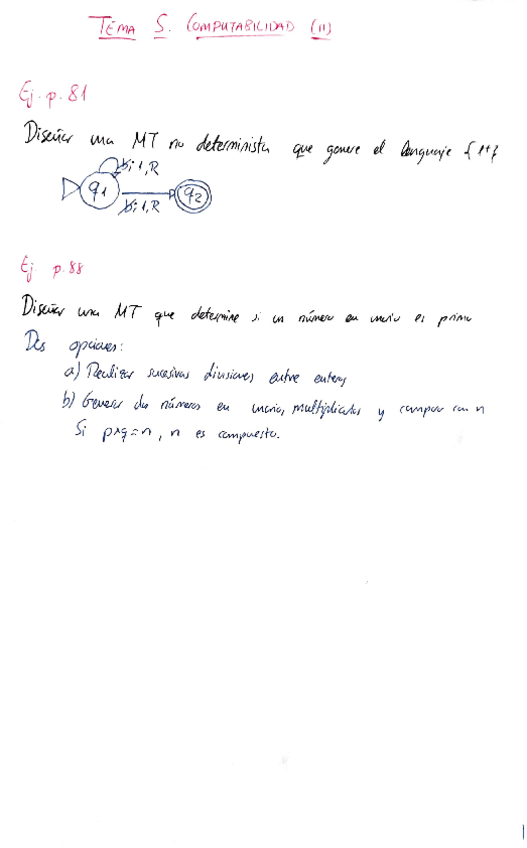 TEMA 5. COMPUTABILIDAD (II)
Ej. p. 81
Diseñar una MT no determinista que genere el lenguaje {1+}
ƀ;1,R
q1 q2
ƀ;1,R
Ej p.88
Diseñar una MT que determine si un número en unario es primo
Dos opciones:
a) Realizar sucesivas divisiones entre enteros
b) Generar dos números en unario, multiplicarlos y comparar con n
Si p×q=n, n es compuesto.